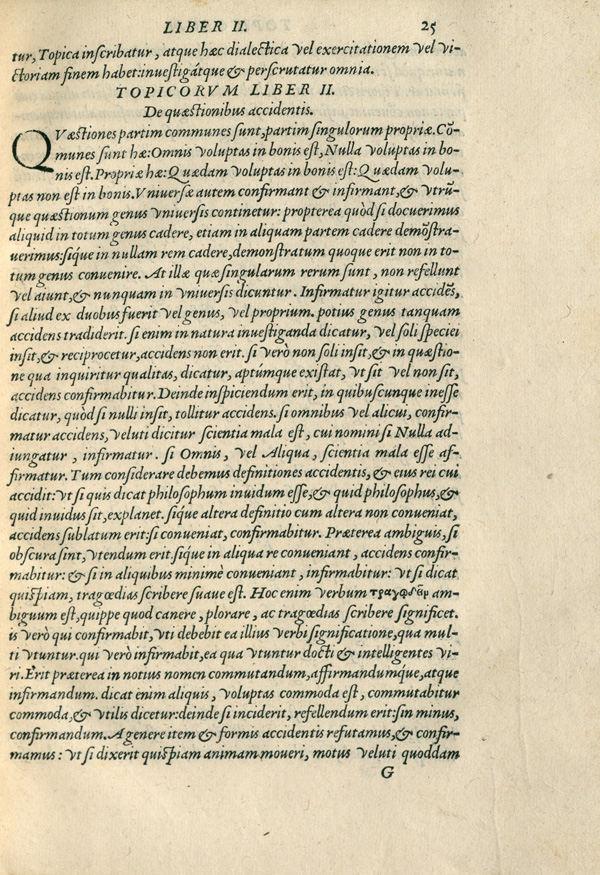 LIBER II. 25
tur, Topica inscribatur, atque hæc dialectica vel exercitationem vel vi-
ctoriam finem habet:inuestigátque & perscrutatur omnia.
TOPICORVM LIBER II.
De quæstionibus accidentis.
QVæstiones partim communes sunt,partim singulorum propriæ.Cõ-
munes sunt hæ:Omnis voluptas in bonis est,Nulla voluptas in bo-
nis est.Propriæ hæ:Quædam voluptas in bonis est:Quædam volu-
ptas non est in bonis.Vniuersæ autem confirmant & infirmant,& vtrũ-
que quæstionum genus vniuersis continetur: propterea quòd si docuerimus
aliquid in totum genus cadere, etiam in aliquam partem cadere demõstra-
uerimus:síque in nullam rem cadere,demonstratum quoque erit non in to-
tum genus conuenire. At illæ quæ singularum rerum sunt, non refellunt
vel aiunt,& nunquam in vniuersis dicuntur. Infirmatur igitur accidẽs,
si aliud ex duobus fuerit vel genus, vel proprium. potius genus tanquam
accidens tradiderit. si enim in natura inuestiganda dicatur, vel soli speciei
insit,& reciprocetur,accidens non erit. si verò non soli insit,& in quæstio-
ne qua inquiritur qualitas, dicatur, aptúmque existat, vt sit vel non sit,
accidens confirmabitur.Deinde inspiciendum erit, in quibuscunque inesse
dicatur, quòd si nulli insit, tollitur accidens. si omnibus vel alicui, confir-
matur accidens, veluti dicitur scientia mala est, cui nomini si Nulla ad-
iungatur, infirmatur. si Omnis, vel Aliqua, scientia mala esse af-
firmatur. Tum considerare debemus definitiones accidentis,& eius rei cui
accidit:vt si quis dicat philosophum inuidum esse,& quid philosophus,&
quid inuidus sit,explanet. sique altera definitio cum altera non conueniat,
accidens sublatum erit:si conueniat, confirmabitur. Præterea ambiguis,si
obscura sint,vtendum erit.síque in aliqua re conueniant, accidens confir-
mabitur: & si in aliquibus minimè conueniant, infirmabitur: vt si dicat
quispiam, tragœdias scribere suaue est. Hoc enim verbum τραγῳδεῖν am-
biguum est,quippe quod canere, plorare, ac tragœdias scribere significet.
is verò qui confirmabit,vti debebit ea illius verbi significatione,qua mul-
ti vtuntur.qui verò infirmabit,ea qua vtuntur docti & intelligentes vi-
ri.Erit præterea in notius nomen commutandum,affirmandumque,atque
infirmandum. dicat enim aliquis, voluptas commoda est, commutabitur
commoda,& vtilis dicetur:deinde si inciderit, refellendum erit:sin minus,
confirmandum. A genere item & formis accidentis refutamus,& confir-
mamus: vt si dixerit quispiam animam moueri, motus veluti quoddam
G